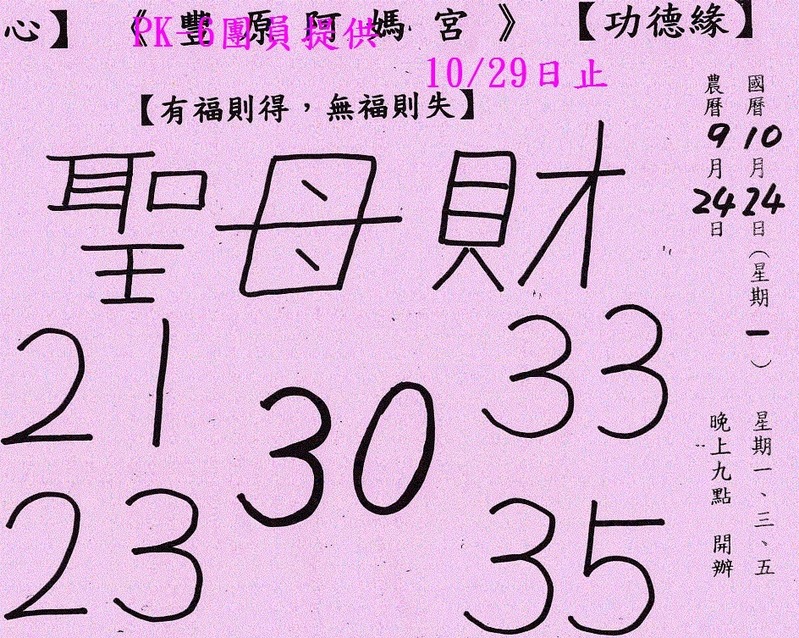 心】 《豐原阿媽宮》 【功德緣】
PK-6團員提供
10/29日止
【有福則得，無福則失】
國曆10月24日（星期一）
農曆9月24日
星期一、三、五
晚上九點 開辦
聖母財
21 33
30
23 35